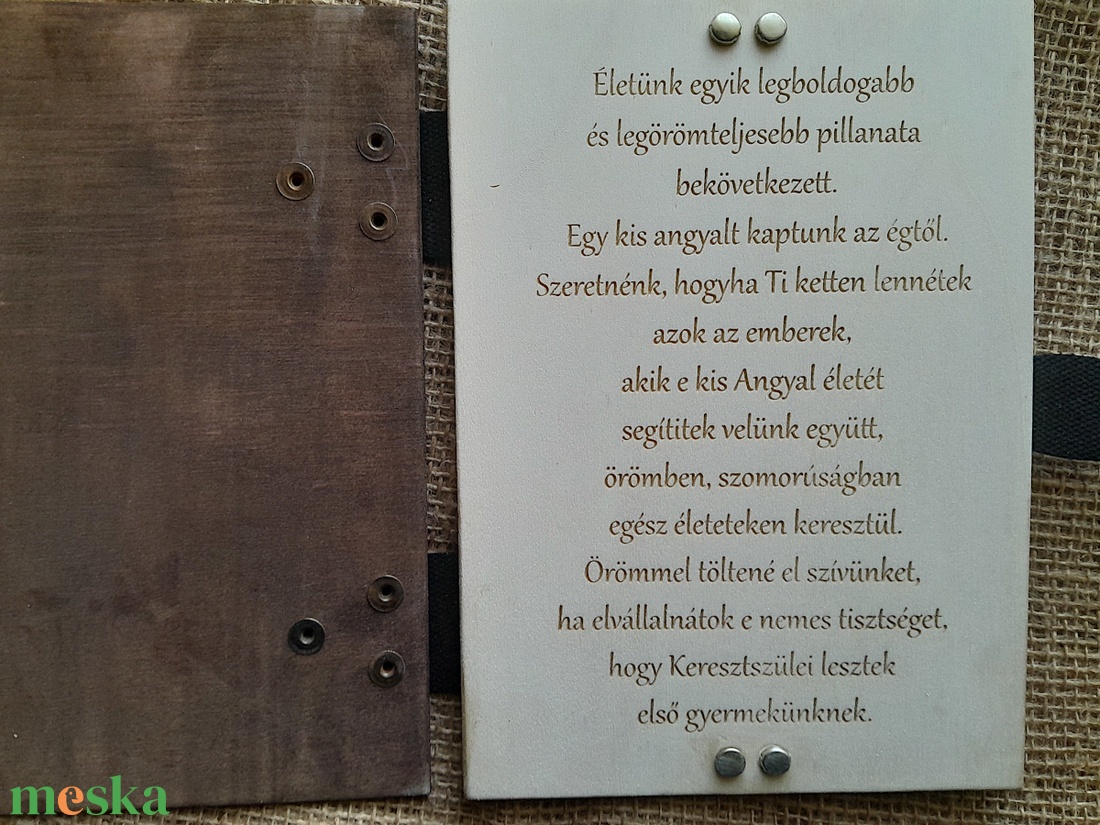 Életünk egyik legboldogabb
és legörömteljesebb pillanata
bekövetkezett.
Egy kis angyalt kaptunk az égtől.
Szeretnénk, hogyha Ti ketten lennétek
azok az emberek,
akik e kis Angyal életét
segítitek velünk együtt,
örömben, szomorúságban
egész életeteken keresztül.
Örömmel töltené el szívünket,
ha elvállalnátok e nemes tisztséget,
hogy Keresztszülei lesztek
első gyermekünknek.
meska